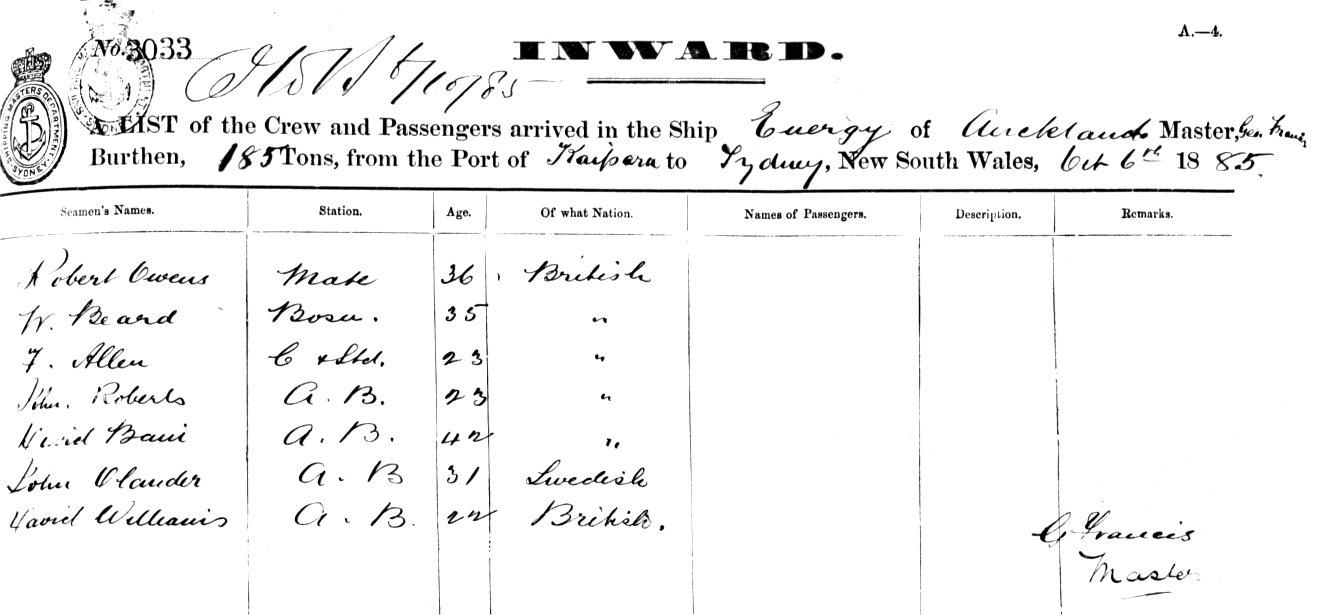 A.—4.
No. 3033
INWARD.
6/10/85
SHIPPING MASTERS DEPARTMENT SYDNEY
A LIST of the Crew and Passengers arrived in the Ship Energy of Auckland Master, Geo. Francis
Burthen, 185 Tons, from the Port of Kaipara to Sydney, New South Wales, Oct 6th 1885.
Seamen's Names. Station. Age. Of what Nation. Names of Passengers. Description. Remarks.
Robert Owens Mate 36 British
W. Beard Bosn. 35 "
F. Allen C & Std. 23 "
John. Roberts A. B. 23 "
David A. B. 42 "
John Olander A. B 31 Swedish
David Williams A. B. 22 British.
G Francis
Master